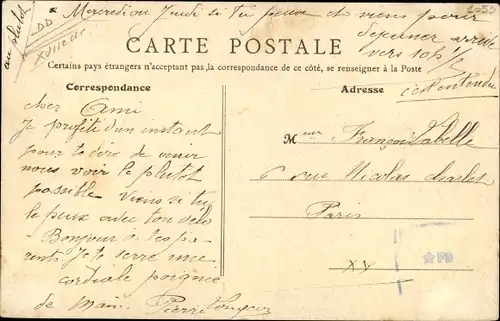 Mercredi ou Jeudi si tu peux viens pour
déjeuner arrive
vers 10h 1/2
c'est entendu
au plutôt
DD
XVIIeur
2050
CARTE POSTALE
Certains pays étrangers n'acceptant pas la correspondance de ce côté, se renseigner à la Poste
Correspondance
cher Ami
Je profite d'un instant
pour te dire de venir
nous voir le plutôt
possible Viens si tu
le peux avec ton vélo
Bonjour à tes pa-
rents. Je te serre une
cordiale poignée
de main. Pierre
Adresse
Msieur François Labelle
6 rue Nicolas charlet
Paris
XV
☆PD